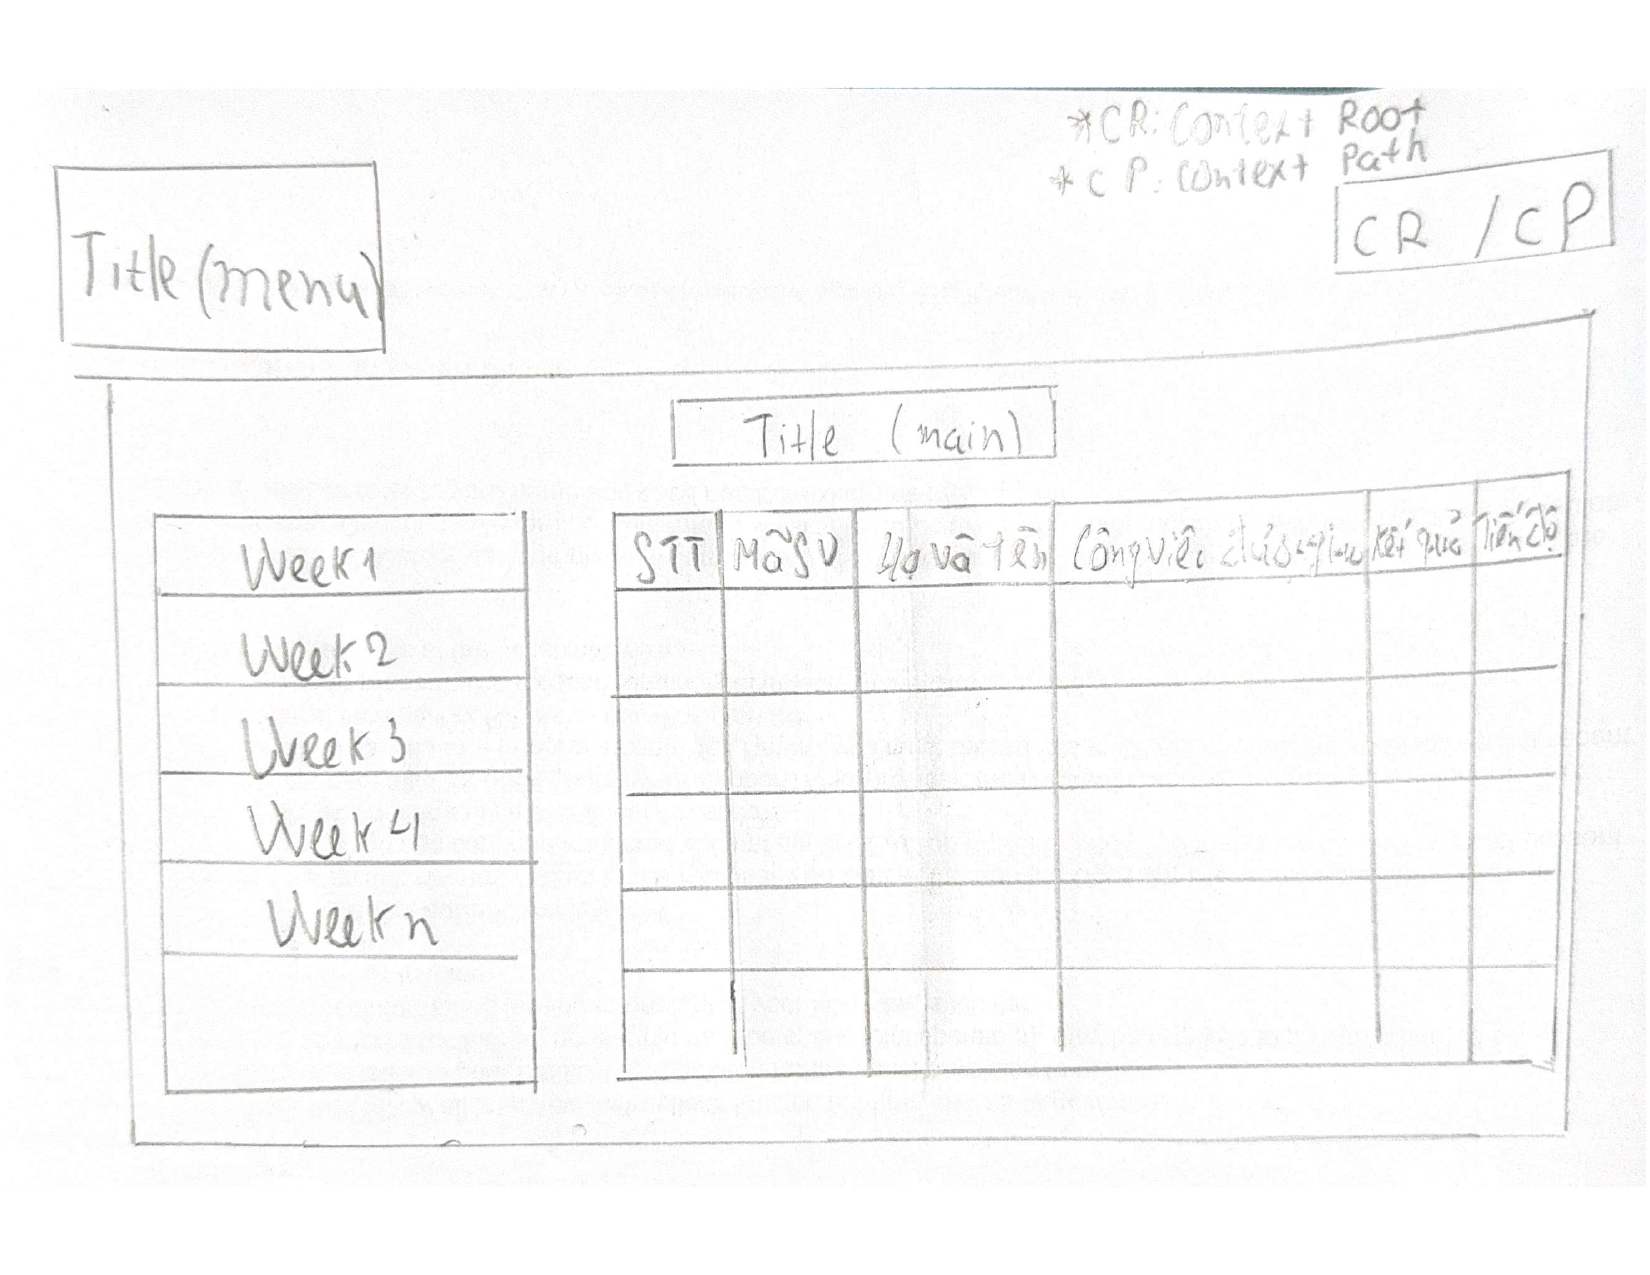 *CR: Context Root
*CP: Context Path
Title (menu)
CR / CP
Title (main)
Week 1
Week 2
Week 3
Week 4
Week n
STT Mã SV Họ và tên Công việc được giao Kết quả Tiến độ